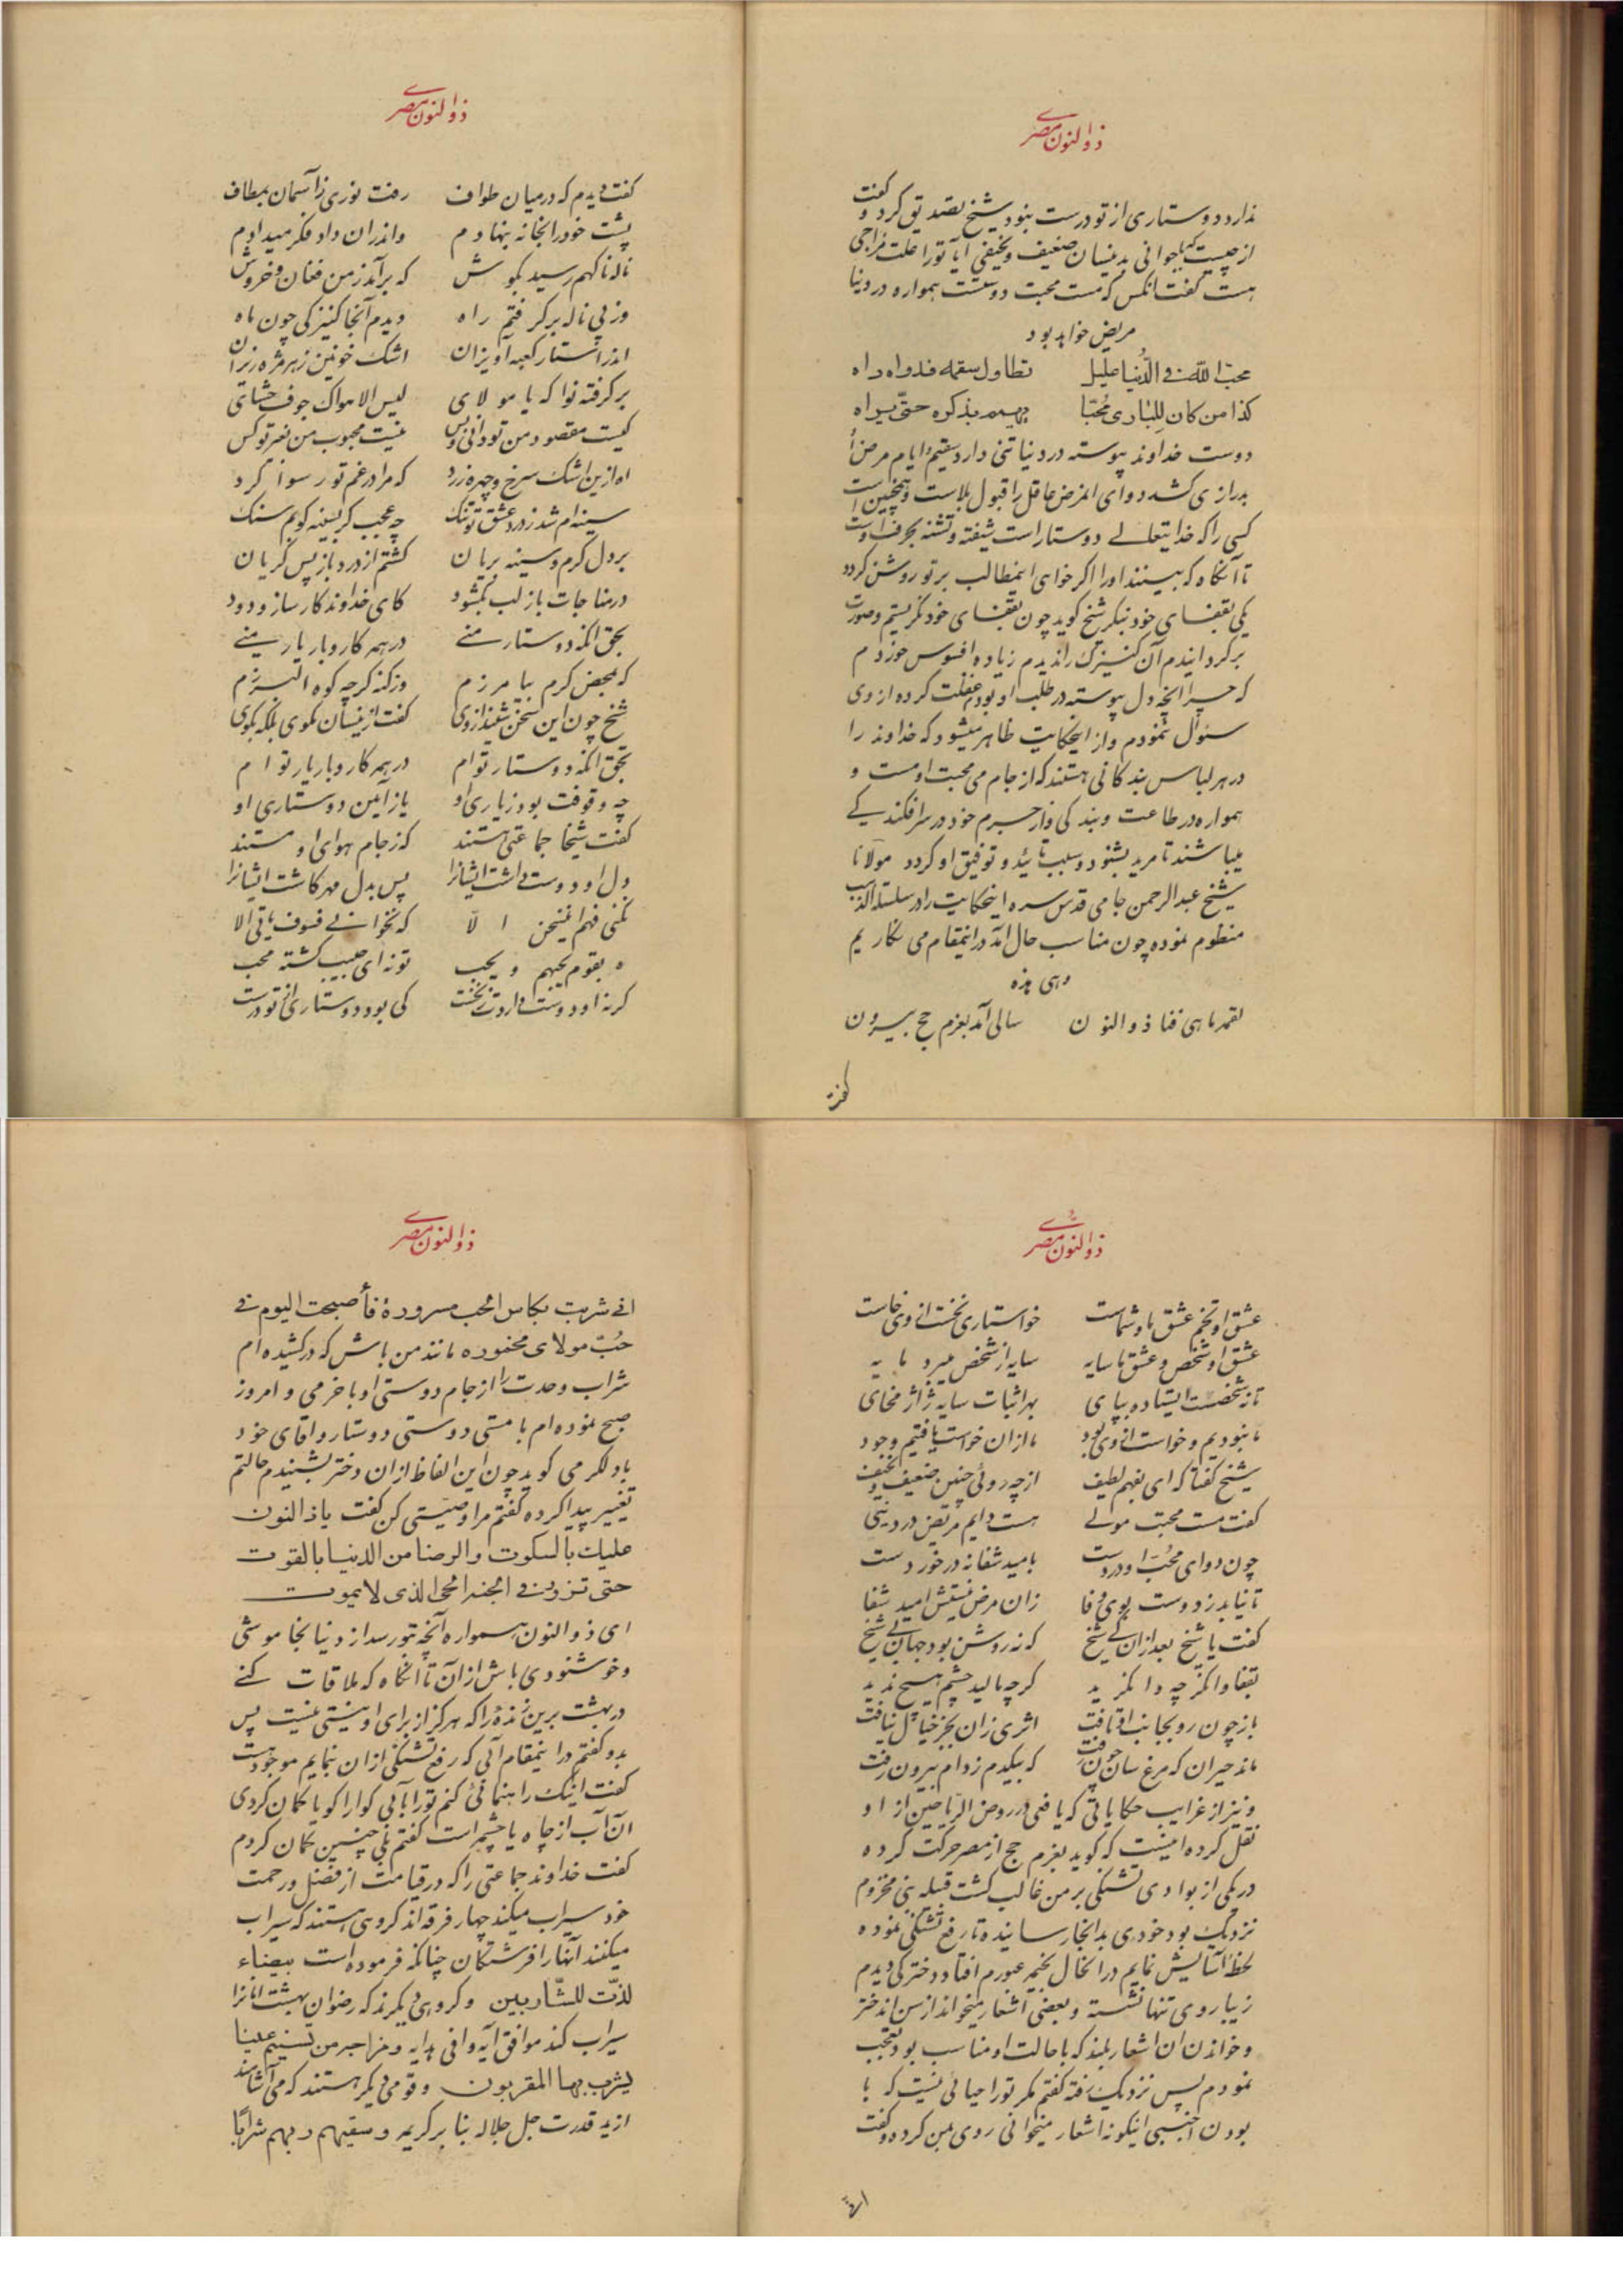 ذوالنون مصری
ندارد دوستاری از تو درست بنود شیخ تصدیق کرد و گفت
از چیست که بجوانی بدینسان ضعیف و نحیفی آیا تو را علت مزاجی
هست گفت آنکس که مست محبت دوستست همواره در دنیا
مریض خواهد بود
محبّ اللّه فی الدُّنیا علیل تطاول سقمه فدواه داه
کذا من کان للباری مُحبّا یهیم بذکره حتّی یراه
دوست خداوند پیوسته در دنیا تنی دارد سقیم و ایام مرض را
بدرازی کشد دوای المرض عاقل را قبول بلاست و همچنین است
کسی را که خدایتعالی دوستار است شیفته و تشنه
تا آنگاه که ببینند او را اکر خواهی اینمطالب بر تو روشن کردد
یکی بقفای خود بنکر شیخ کوید چون بقفای خود نکریستم و صورت
برکردانیدم آن کنیزک را ندیدم زیاده افسوس خوردم
که چرا آنچه دل پیوسته در طلب او بود غفلت کرده از وی
سئوال ننمودم و از اینحکایت ظاهر میشود که خداوند را
در هر لباس بندکانی هستند که از جام می محبت او مست و
همواره در طاعت و بندکی و از جرم خود در سرافکندکی
میباشند تا مرید بشنود و سبب تائید و توفیق او کردد مولانا
شیخ عبدالرحمن جامی قدس سره اینحکایت را در سلسلة الذهب
منظوم نموده چون مناسب حال آمد در اینمقام می نکاریم
وهی هذه
لقمه ماهی فنا ذوالنون سالی آمد بعزم حج بیرون
گفت
ذوالنون مصری
گفت دیدم که در میان طواف رفت نوری ز آسمان بمطاف
پشت خود را بخانه بنهادم واندران داد فکر میدادم
ناله ناکهم رسید بکوش که برآمد ز من فغان و خروش
وز پی ناله برکرفتم راه دیدم آنجا کنیزکی چون ماه
اندر استار کعبه آویزان اشک خونین ز هر مژه ریزان
برکرفته نوا که یا مولای لیس الا هواک جوف حشای
کیست مقصود من تو دانی و بس نیست محبوب من بغیر تو کس
آه ازین اشک سرخ و چهره زرد که مرا در غم تو رسوا کرد
سینه ام شد ز درد عشق تو تنک چه عجب کر بسینه کوبم سنک
بر دل کرم و سینه بریان کشتم از درد باز پس کریان
در مناجات باز لب بکشود کای خداوند کارساز ودود
بحق آنکه دوستار منی در همه کار و بار یار منی
که بمحض کرم بیامرزم وز کنه کرچه کوه البرزم
شیخ چون این سخن شنید از وی گفت ازینسان مکوی بلکه بکوی
بحق آنکه دوستار توام در همه کار و بار یار توام
چه وقوفت بود ز یاری او یا ز آیین دوستاری او
گفت شیخا جماعتی هستند که ز جام هوای او مستند
اول او دوست داشت ایشانرا پس بدل مهر کاشت ایشانرا
نکنی فهم اینسخن الّا که بخوانی فسوف یأتی الا
ه بقوم یحبهم و یحب تو نه ای حبیب کشته محب
کر نه او دوست داردت ز نخست کی بود دوستاری از تو درست
ذوالنون مصری
عشق او تخم عشق ما و شماست خواستاری نخست از وی خاست
عشق او شخص و عشق ما سایه سایه از شخص میبرد مایه
تا نه شخصست ایستاده بپای بهر اثبات سایه ژاژ مخای
ما نبودیم و خواست از وی بود ما از آن خواست یافتیم وجود
شیخ گفتا که ای بفهم لطیف از چه روئی چنین ضعیف و نحیف
گفت مست محبت مولی هست دایم مریض در دنیی
چون دوای محبّ او دردست بامید شفا نه در خوردست
تا نیابد ز دوست بوی وفا زان مرض نیستش امید شفا
گفت با شیخ بعد از آن کای شیخ که نه روشن بود جهان بی شیخ
بقفا وانکر چه وانکرید کرچه مالید چشم هیچ ندید
باز چون رو بجانب او تافت اثری زان بجز خیال نیافت
ماند حیران که مرغ سان چون رفت که بیکدم ز دام بیرون رفت
و نیز از غرایب حکایاتی که یافعی در روض الریاحین از او
نقل کرده اینست که کوید بعزم حج از مصر حرکت کرده
در یکی از بوادی تشنکی بر من غالب کشت قبیله بنی مخزوم
نزدیک بود خود را بدانجا رسانیده تا رفع تشنکی نموده
لحظه آسایش نمایم در آنحال بخیمه عبورم افتاد دخترکی دیدم
زیباروی تنها نشسته و بعضی اشعار میخواند از سن آندختر
و خواندن آن اشعار بلند که با حالت او مناسب بود تعجب
نمودم پس نزدیک رفته گفتم مکر تو را حیائی نیست که با
بودن اجنبی اینکونه اشعار میخوانی روی بمن کرده و گفت
انی
ذوالنون مصری
انی شربت بکاس الحب مسرورة فأصبحت الیوم فی
حُبّ مولای مخمورة مانند من باش که درکشیده ام
شراب وحدت را از جام دوستی او با خرمی و امروز
صبح نموده ام با مستی دوستی دوستار و آقای خود
باز ذوالنون می کوید چون این الفاظ از آن دختر بشنیدم حالتم
تغییر پیدا کرده گفتم مرا وصیّتی کن گفت یا ذالنون
علیک بالسکوت والرضا من الدنیا بالقوت
حتی تزور فی الجنة الحی الذی لا یموت
ای ذوالنون همواره آنچه بتو رسد از دنیا بخاموشی
و خوشنودی باش از آن تا آنگاه که ملاقات کنی
در بهشت برین زندهٔ را که هرکز از برای او نیستی نیست پس
بدو گفتم در اینمقام آبی که رفع تشنکی از آن نمایم موجود است
گفت اینک راهنمائی کنم تو را بآبی کوارا کویا کمان کردی
آن آب از چاه یا چشمه است گفتم بلی چنین کمان کردم
گفت خداوند جماعتی را که در قیامت از فضل و رحمت
خود سیراب میکند چهار فرقه اند کروهی هستند که سیراب
میکنند آنها را فرشتکان چنانکه فرموده است بیضاء
لذّت للشّاربین و کروهی دیکرند که رضوان بهشت آنانرا
سیراب کند موافق آیه وافی هدایه و مزاجه من تسنیم عینا
یشرب بها المقربون و قومی دیکر هستند که می آشامند
از ید قدرت جل جلاله بنا بر کریمه و سقیهم ربهم شرابًا